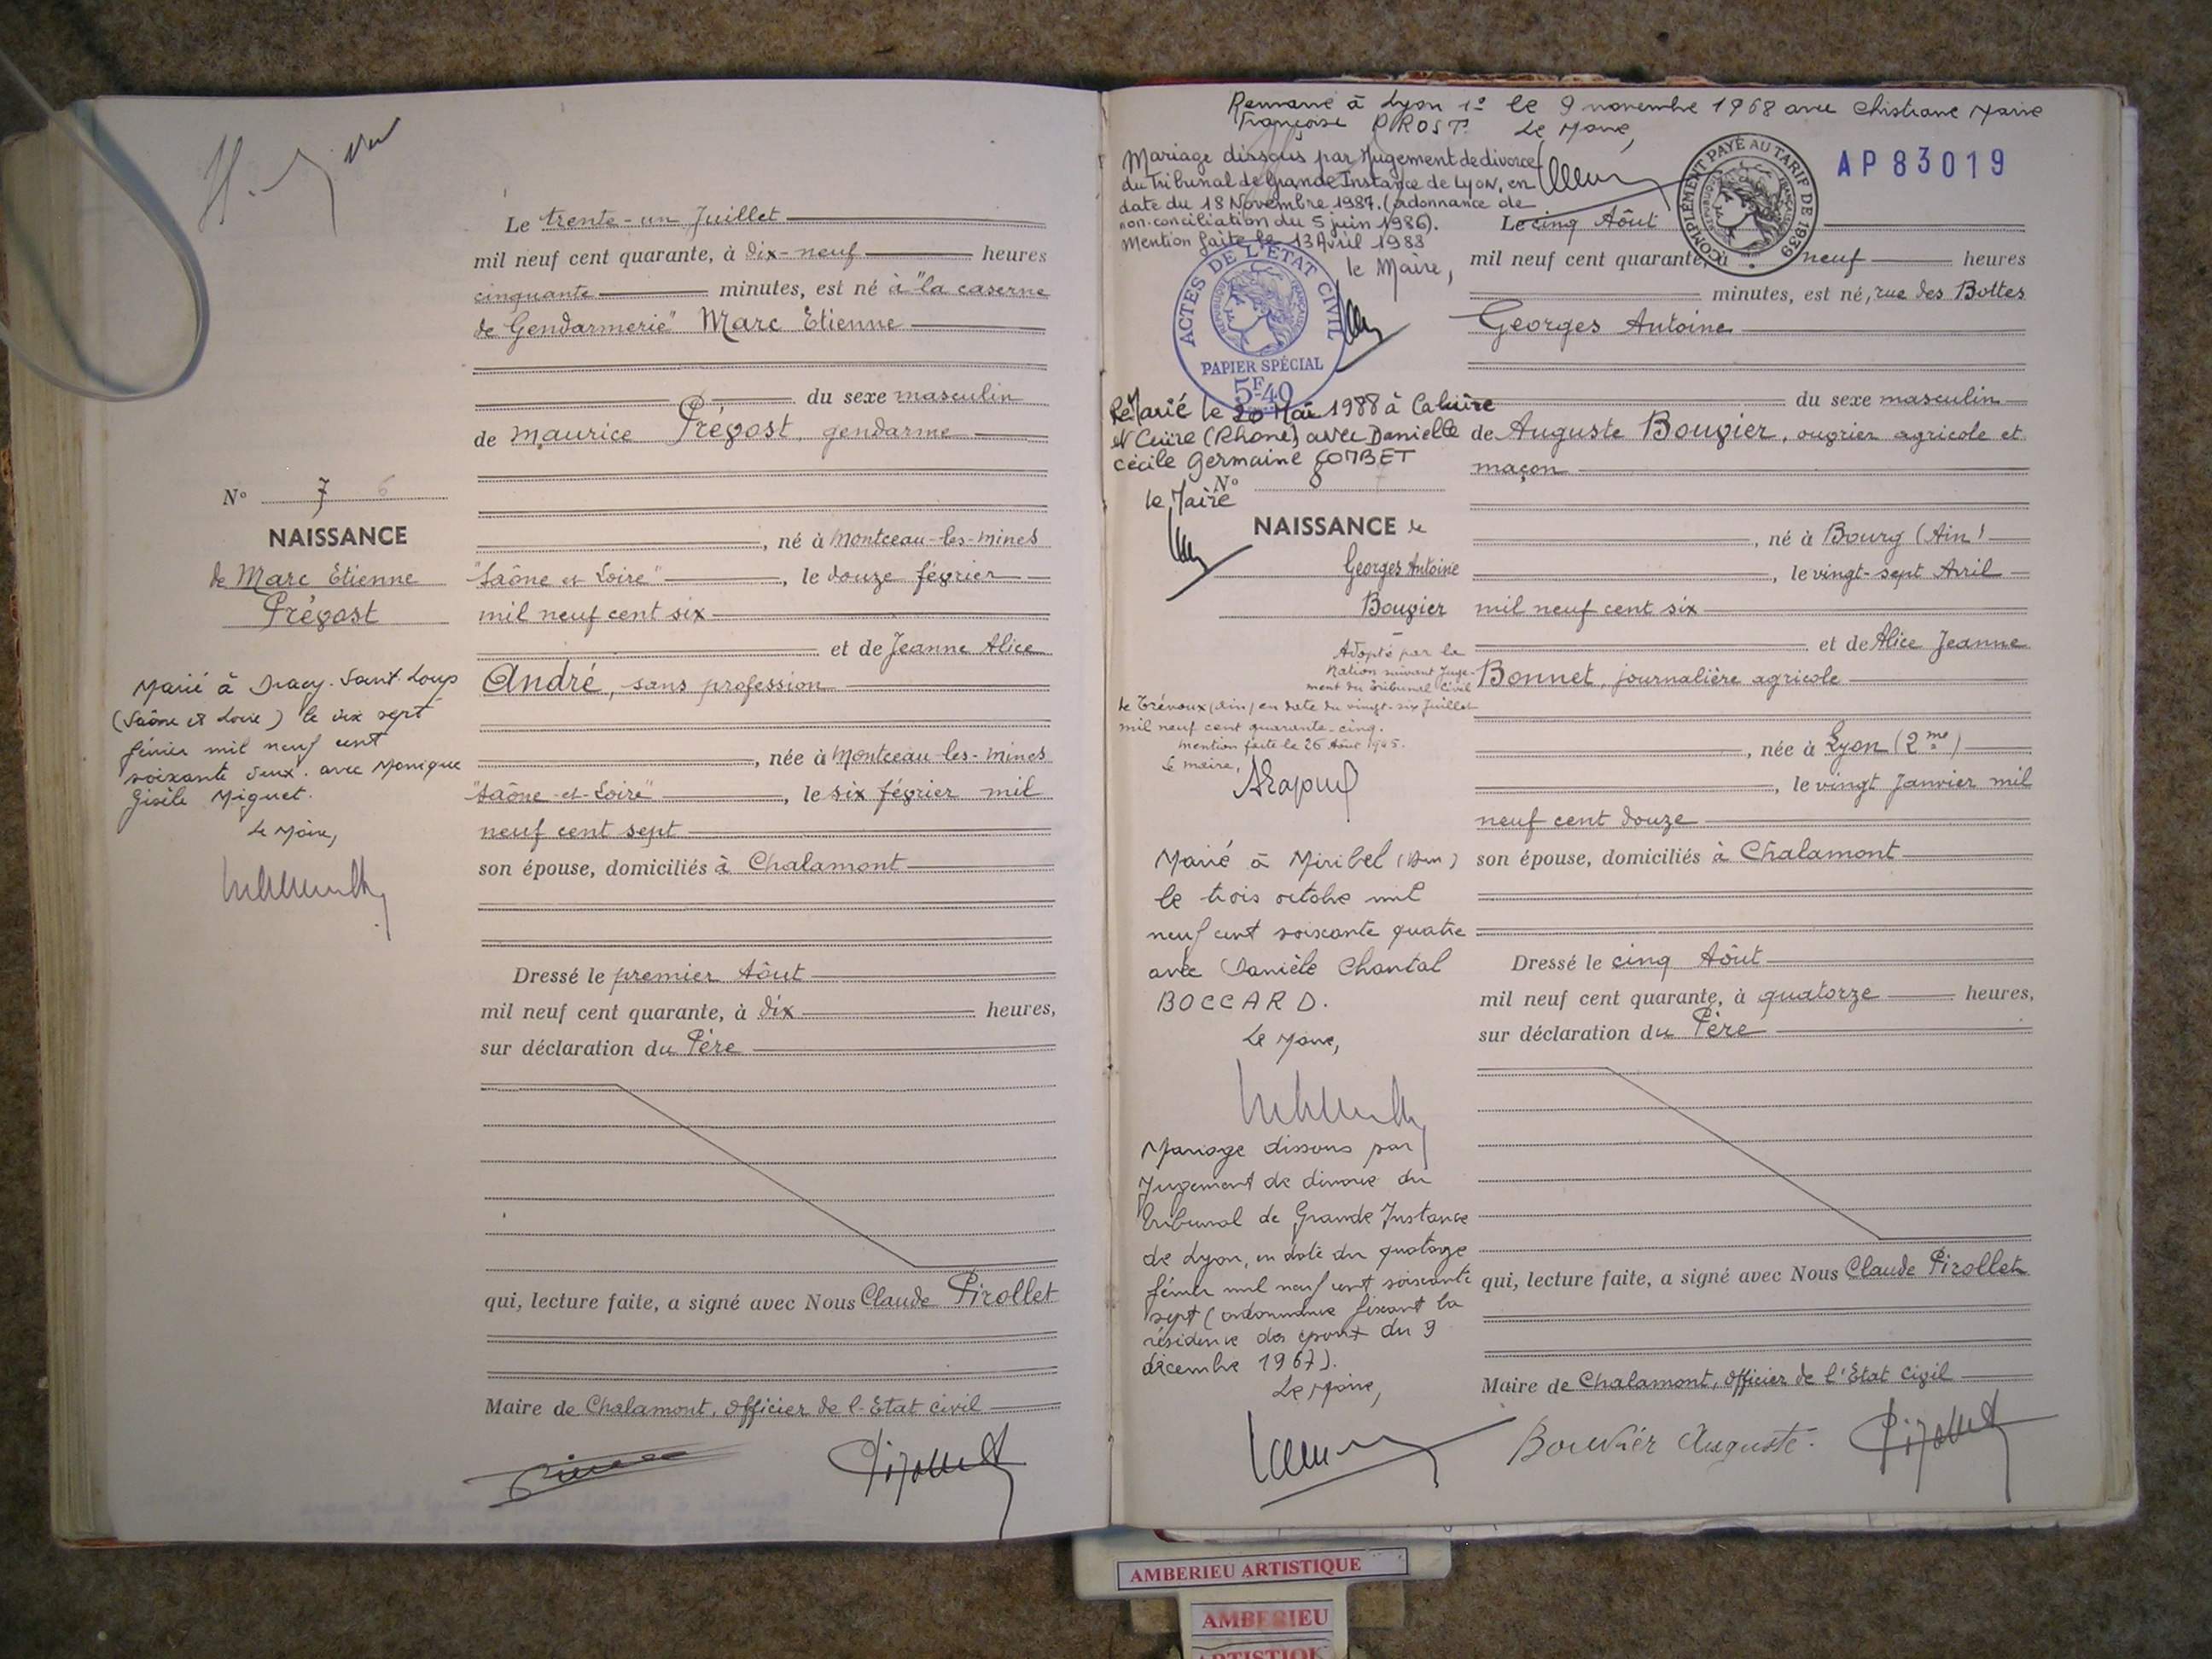 Le trente-un Juillet
mil neuf cent quarante, à dix-neuf heures
cinquante minutes, est né à "la caserne
de Gendarmerie" Marc Etienne
du sexe masculin
de Maurice Prévost, gendarme
N° 7 6
NAISSANCE
de Marc Etienne
Prévost
né à Montceau-les-Mines
"Saône et Loire", le douze février
mil neuf cent six
et de Jeanne Alice
André, sans profession
née à Montceau-les-Mines
"Saône-et-Loire", le six février mil
neuf cent sept
son épouse, domiciliés à Chalamont
Marié à Dracy-Saint-Loup
(Saône et Loire) le dix sept
février mil neuf cent
soixante deux avec Monique
Gisèle Miguet.
Le Maire,
Dressé le premier Aôut
mil neuf cent quarante, à dix heures,
sur déclaration du Père
qui, lecture faite, a signé avec Nous Claude Pirollet
Maire de Chalamont, Officier de l'Etat civil
Remarié à Lyon 1° le 9 novembre 1968 avec Christiane Marie
Françoise PROST. Le Maire,
Mariage dissous par Jugement de divorce
du Tribunal de Grande Instance de Lyon, en
date du 18 Novembre 1987. (ordonnance de
non-conciliation du 5 juin 1986).
Mention faite le 13 Avril 1988
le Maire,
ACTES DE L'ÉTAT CIVIL
RÉPUBLIQUE FRANÇAISE
PAPIER SPÉCIAL
5F40
COMPLÉMENT PAYÉ AU TARIF DE 1939
AP83019
Remarié le 20 Mai 1988 à Caluire
et Cuire (Rhône) avec Danielle
Cécile Germaine GOMBET
le Maire
Le cinq Aôut
mil neuf cent quarante, à neuf heures
minutes, est né, rue des Bottes
Georges Antoine
du sexe masculin
de Auguste Bouvier, ouvrier agricole et
maçon
N°
NAISSANCE de
Georges Antoine
Bouvier
né à Bourg (Ain)
le vingt-sept Avril
mil neuf cent six
et de Alice Jeanne
Bonnet, journalière agricole
née à Lyon (2me)
le vingt Janvier mil
neuf cent douze
son épouse, domiciliés à Chalamont
Adopté par la
Nation suivant Juge-
ment du Tribunal Civil
de Trévoux (Ain) en date du vingt-six Juillet
mil neuf cent quarante-cinq.
Mention faite le 26 Aôut 1945.
Le Maire,
Marié à Miribel (Ain)
le trois octobre mil
neuf cent soixante quatre
avec Danièle Chantal
BOCCARD.
Le Maire,
Mariage dissous par
Jugement de divorce du
Tribunal de Grande Instance
de Lyon, en date du quatorze
février mil neuf cent soixante
sept (ordonnance fixant la
résidence des époux du 9
décembre 1967).
Le Maire,
Dressé le cinq Aôut
mil neuf cent quarante, à quatorze heures,
sur déclaration du Père
qui, lecture faite, a signé avec Nous Claude Pirollet
Maire de Chalamont, Officier de l'Etat Civil
Bouvier Auguste.
AMBERIEU ARTISTIQUE
AMBERIEU